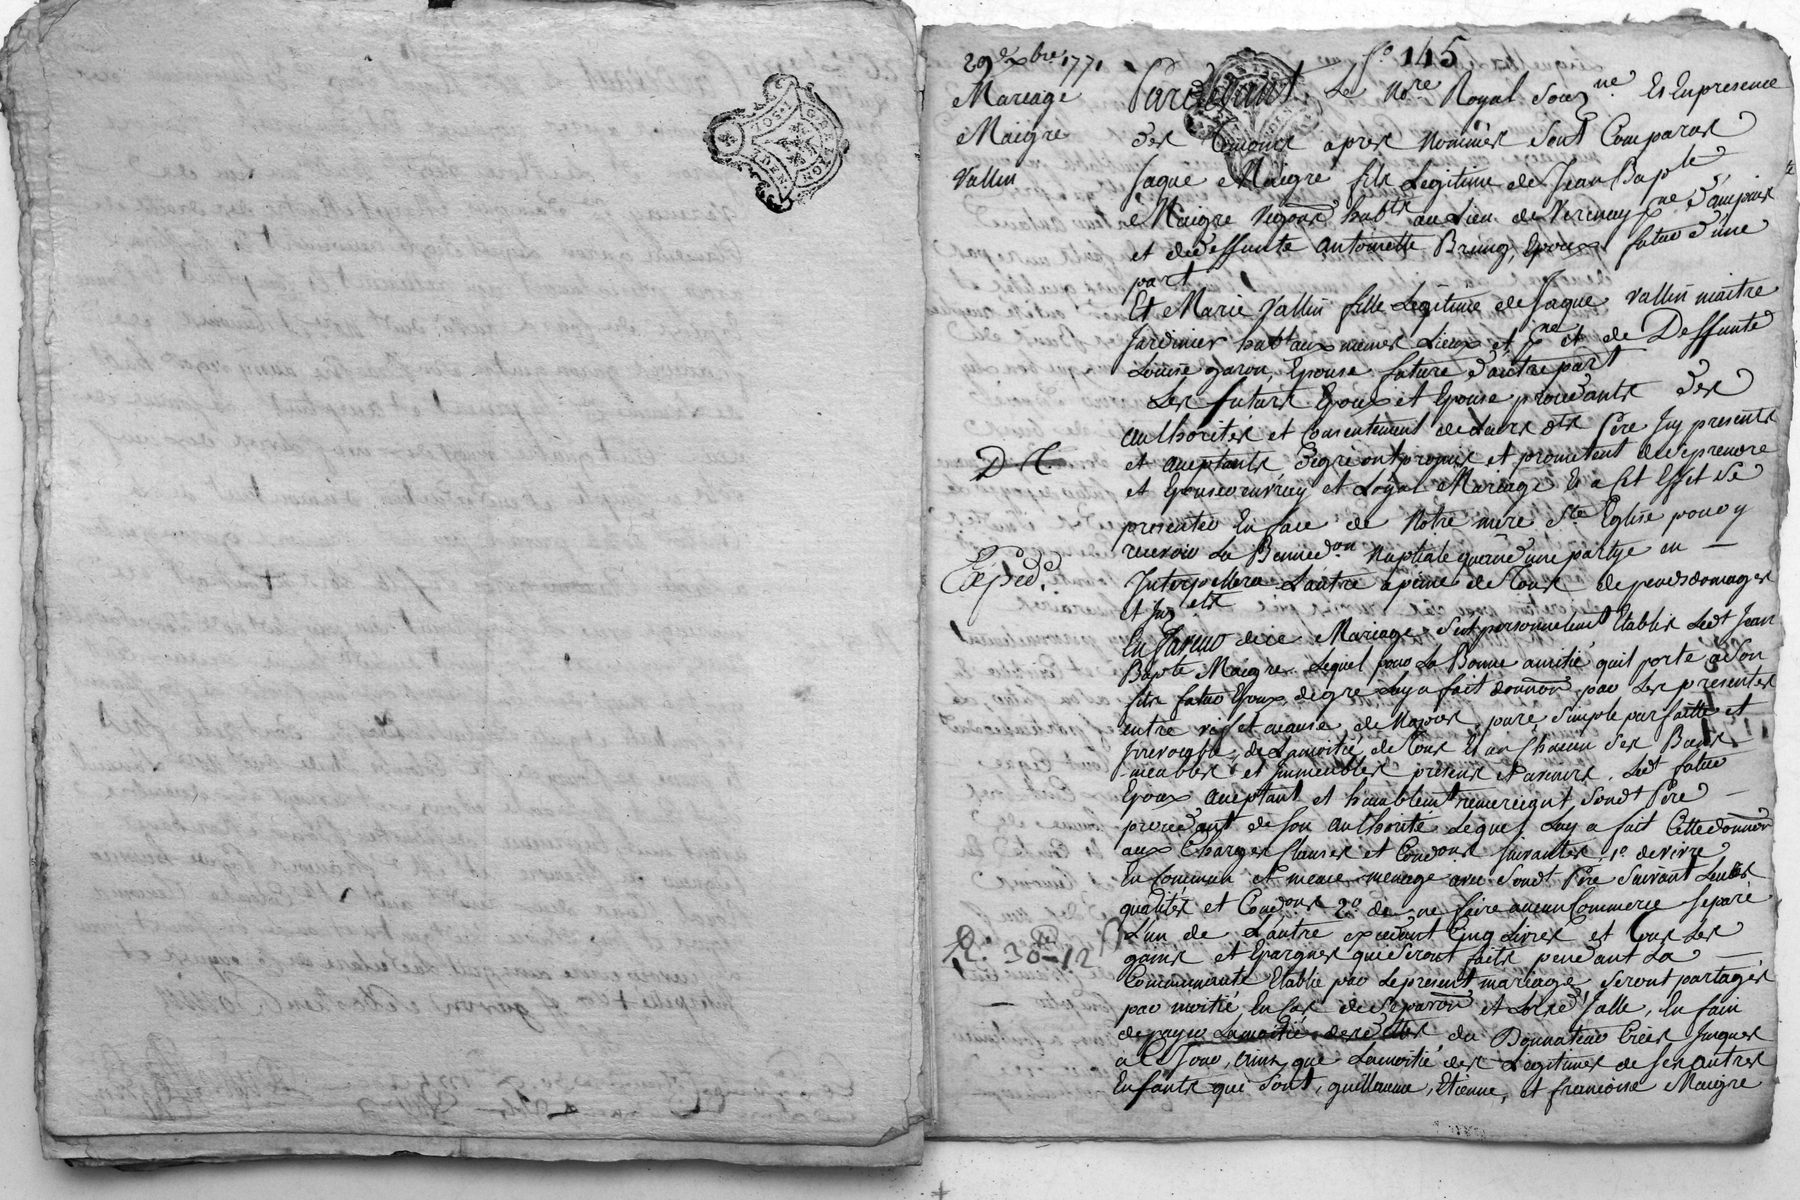 GRATION
fo 145
29e xbre 1771
Mariage
Maigre
Vallin
Pardevant Le Nore Royal Souzne Et En presence
des temoins apres nommés Sont Comparus
Jaque Maigre fils Legitime de Jean Bapte
Maigre Vigon habts au Lieu de Vereney d'ampuis
et de deffunte Antoinette Brunq, Epoux futur d'une
part
Et Marie Vallin fille Legitime de Jaque Vallin maitre
Jardinier habt aux memes Lieux et pne et de Deffunte
Louise garon, Epouse future d'autre part
Les futurs Epoux et Epouse procedants des
authorités et Consentement de Leurs dts Pere Icy presents
et aceptants de gré ont promis et prometent de se prendre
et Epouser en vray et Loyal Mariage Et a cet Effet de se
presenter En face de Notre mere Ste Eglise pour y
recevoir La Benedon Nuptiale quand une partye en
Interpellera L'autre a peine de tous depends domages
et Inretz
En faveur de ce Mariage s'est personnelemt Etablis Ledt Jean
Bapte Maigre Lequel pour La Bonne amitié quil porte a Son
fils futur Epoux de gré Luy a fait donnaon par Les presentes
entre vifs et a cause de Nopces, pure Simple parfaitte et
Irrevocble, de La moitié de tous Et un Chacun Ses Biens
meubles et Immeubles presens et avenirs, Ledt futur
Epoux aceptant et humblemt remerciant Sondt Pere
procedant de son authorité Lequel Luy a fait Cette donnaon
aux Charges Clauses et Condons Suivantes, 1o de vivre
En Commun et meme menage avec Sondt Pere Suivant Leurs
qualités et Condons 2o de ne faire aucun Commerce separé
L'un de L'autre excedant Cinq Livres et tous Les
gains et Epargnes qui Seront faits pendant La
Communauté Etablie par Le present mariage Seront partagés
par moitié En Cas de Separaon et Lors d'Icelle, En fain
de payer La moitié des dettes du Donnateur Crées Jusques
a Ce Jour, ainsy que La moitié des Legitimes de Ses autres
Enfants qui Sont, guillaume, Etienne, et francoise Maigre
Expedé